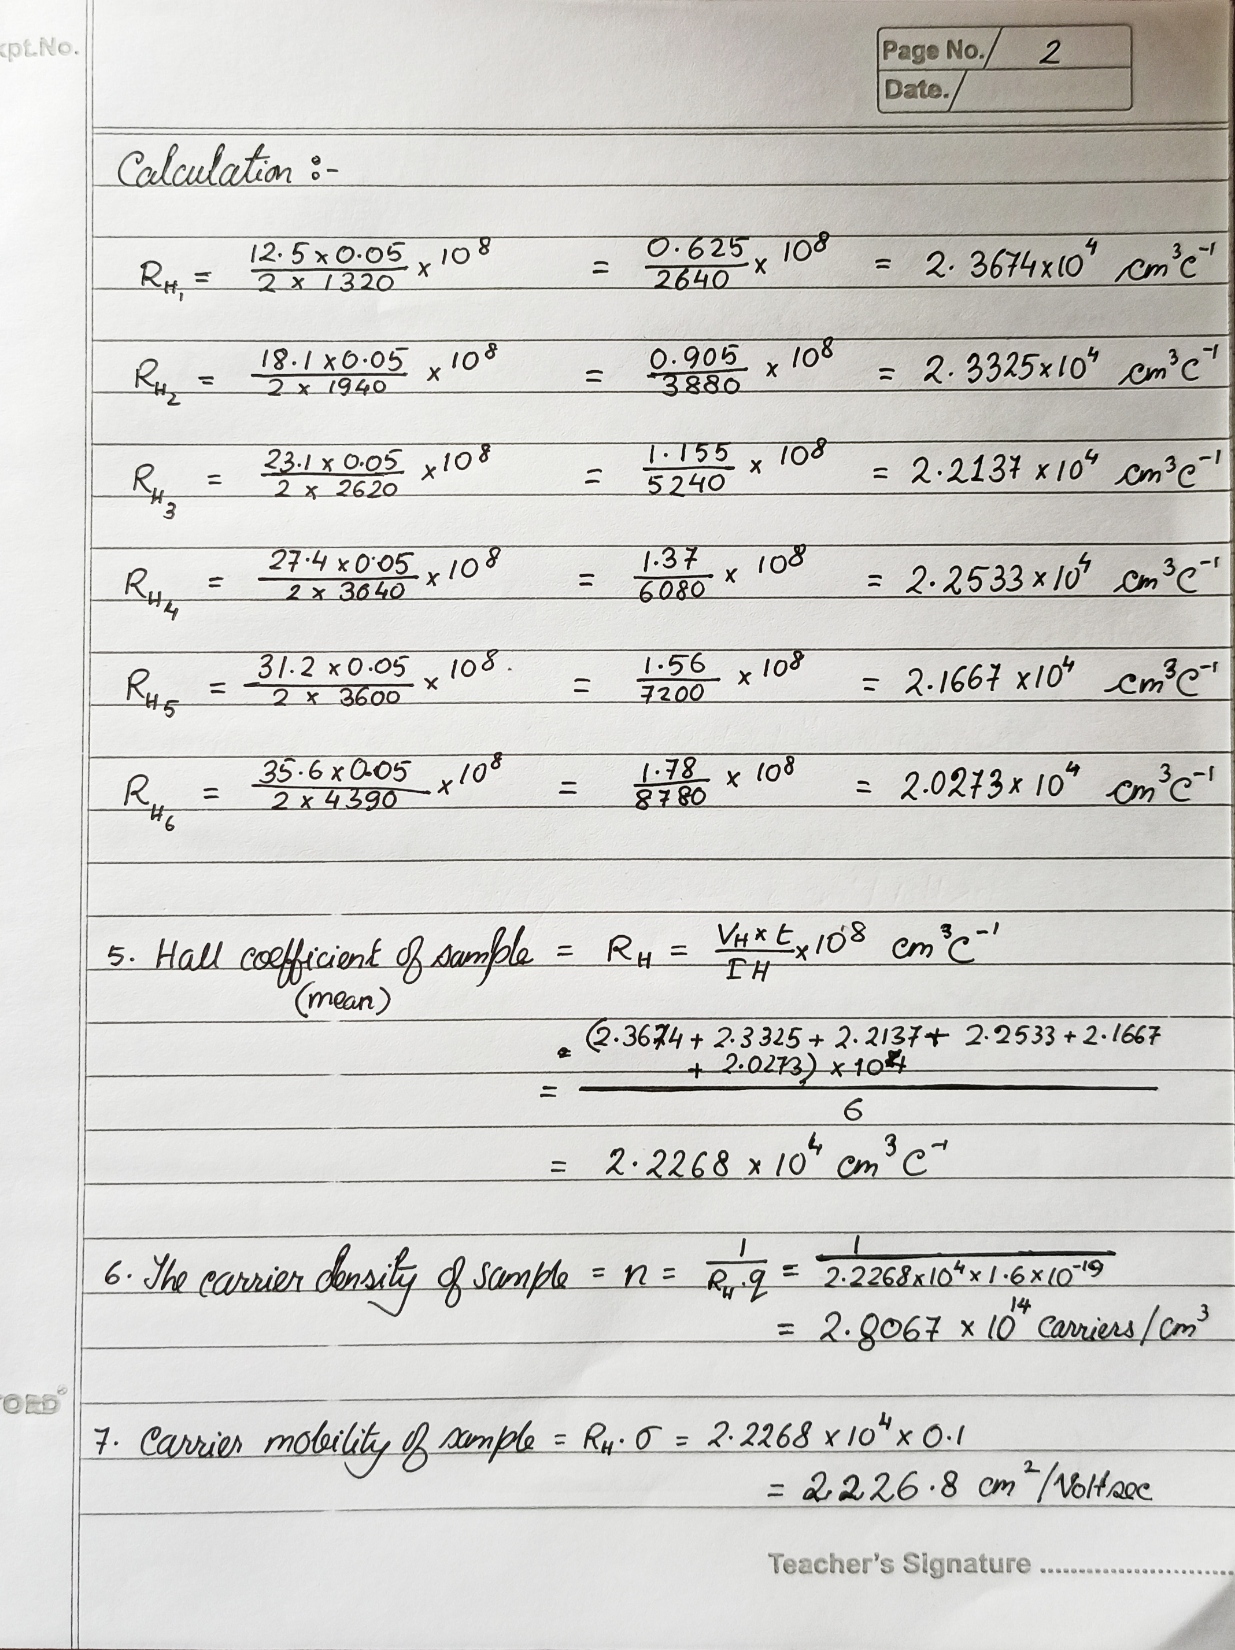 xpt.No.
Page No./ 2
Date./
Calculation :-
R_H₁ = (12.5 x 0.05)/(2 x 1320) x 10⁸ = 0.625/2640 x 10⁸ = 2.3674x10⁴ cm³C⁻¹
R_H₂ = (18.1 x 0.05)/(2 x 1940) x 10⁸ = 0.905/3880 x 10⁸ = 2.3325x10⁴ cm³C⁻¹
R_H₃ = (23.1 x 0.05)/(2 x 2620) x10⁸ = 1.155/5240 x 10⁸ = 2.2137 x10⁴ cm³C⁻¹
R_H₄ = (27.4 x 0.05)/(2 x 3040) x 10⁸ = 1.37/6080 x 10⁸ = 2.2533x10⁴ cm³C⁻¹
R_H₅ = (31.2 x 0.05)/(2 x 3600) x 10⁸ = 1.56/7200 x 10⁸ = 2.1667 x10⁴ cm³C⁻¹
R_H₆ = (35.6 x 0.05)/(2 x 4390) x10⁸ = 1.78/8780 x 10⁸ = 2.0273x 10⁴ cm³C⁻¹
5. Hall coefficient of sample = R_H = (V_H x t)/(I H) x 10⁸ cm³C⁻¹
(mean)
(2.3674 + 2.3325 + 2.2137 + 2.2533 + 2.1667
+ 2.0273) x 10⁴
=
6
= 2.2268 x 10⁴ cm³C⁻¹
6. The carrier density of sample = n = 1/(R_H.q) = 1/(2.2268x10⁴x1.6x10⁻¹⁹)
= 2.8067 x 10¹⁴ Carriers/cm³
7. Carrier mobility of sample = R_H.σ = 2.2268 x 10⁴ x 0.1
= 2226.8 cm²/Volt sec
Teacher's Signature ..........................